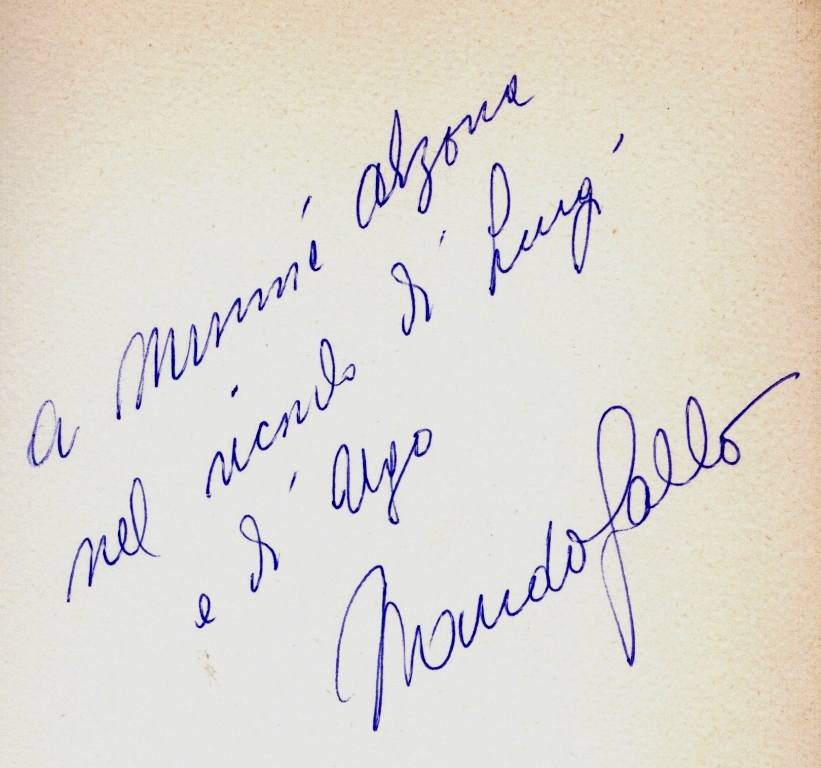 a Mimmí Alzona
nel ricordo di Luigi
e di Ugo
Nando Gallo